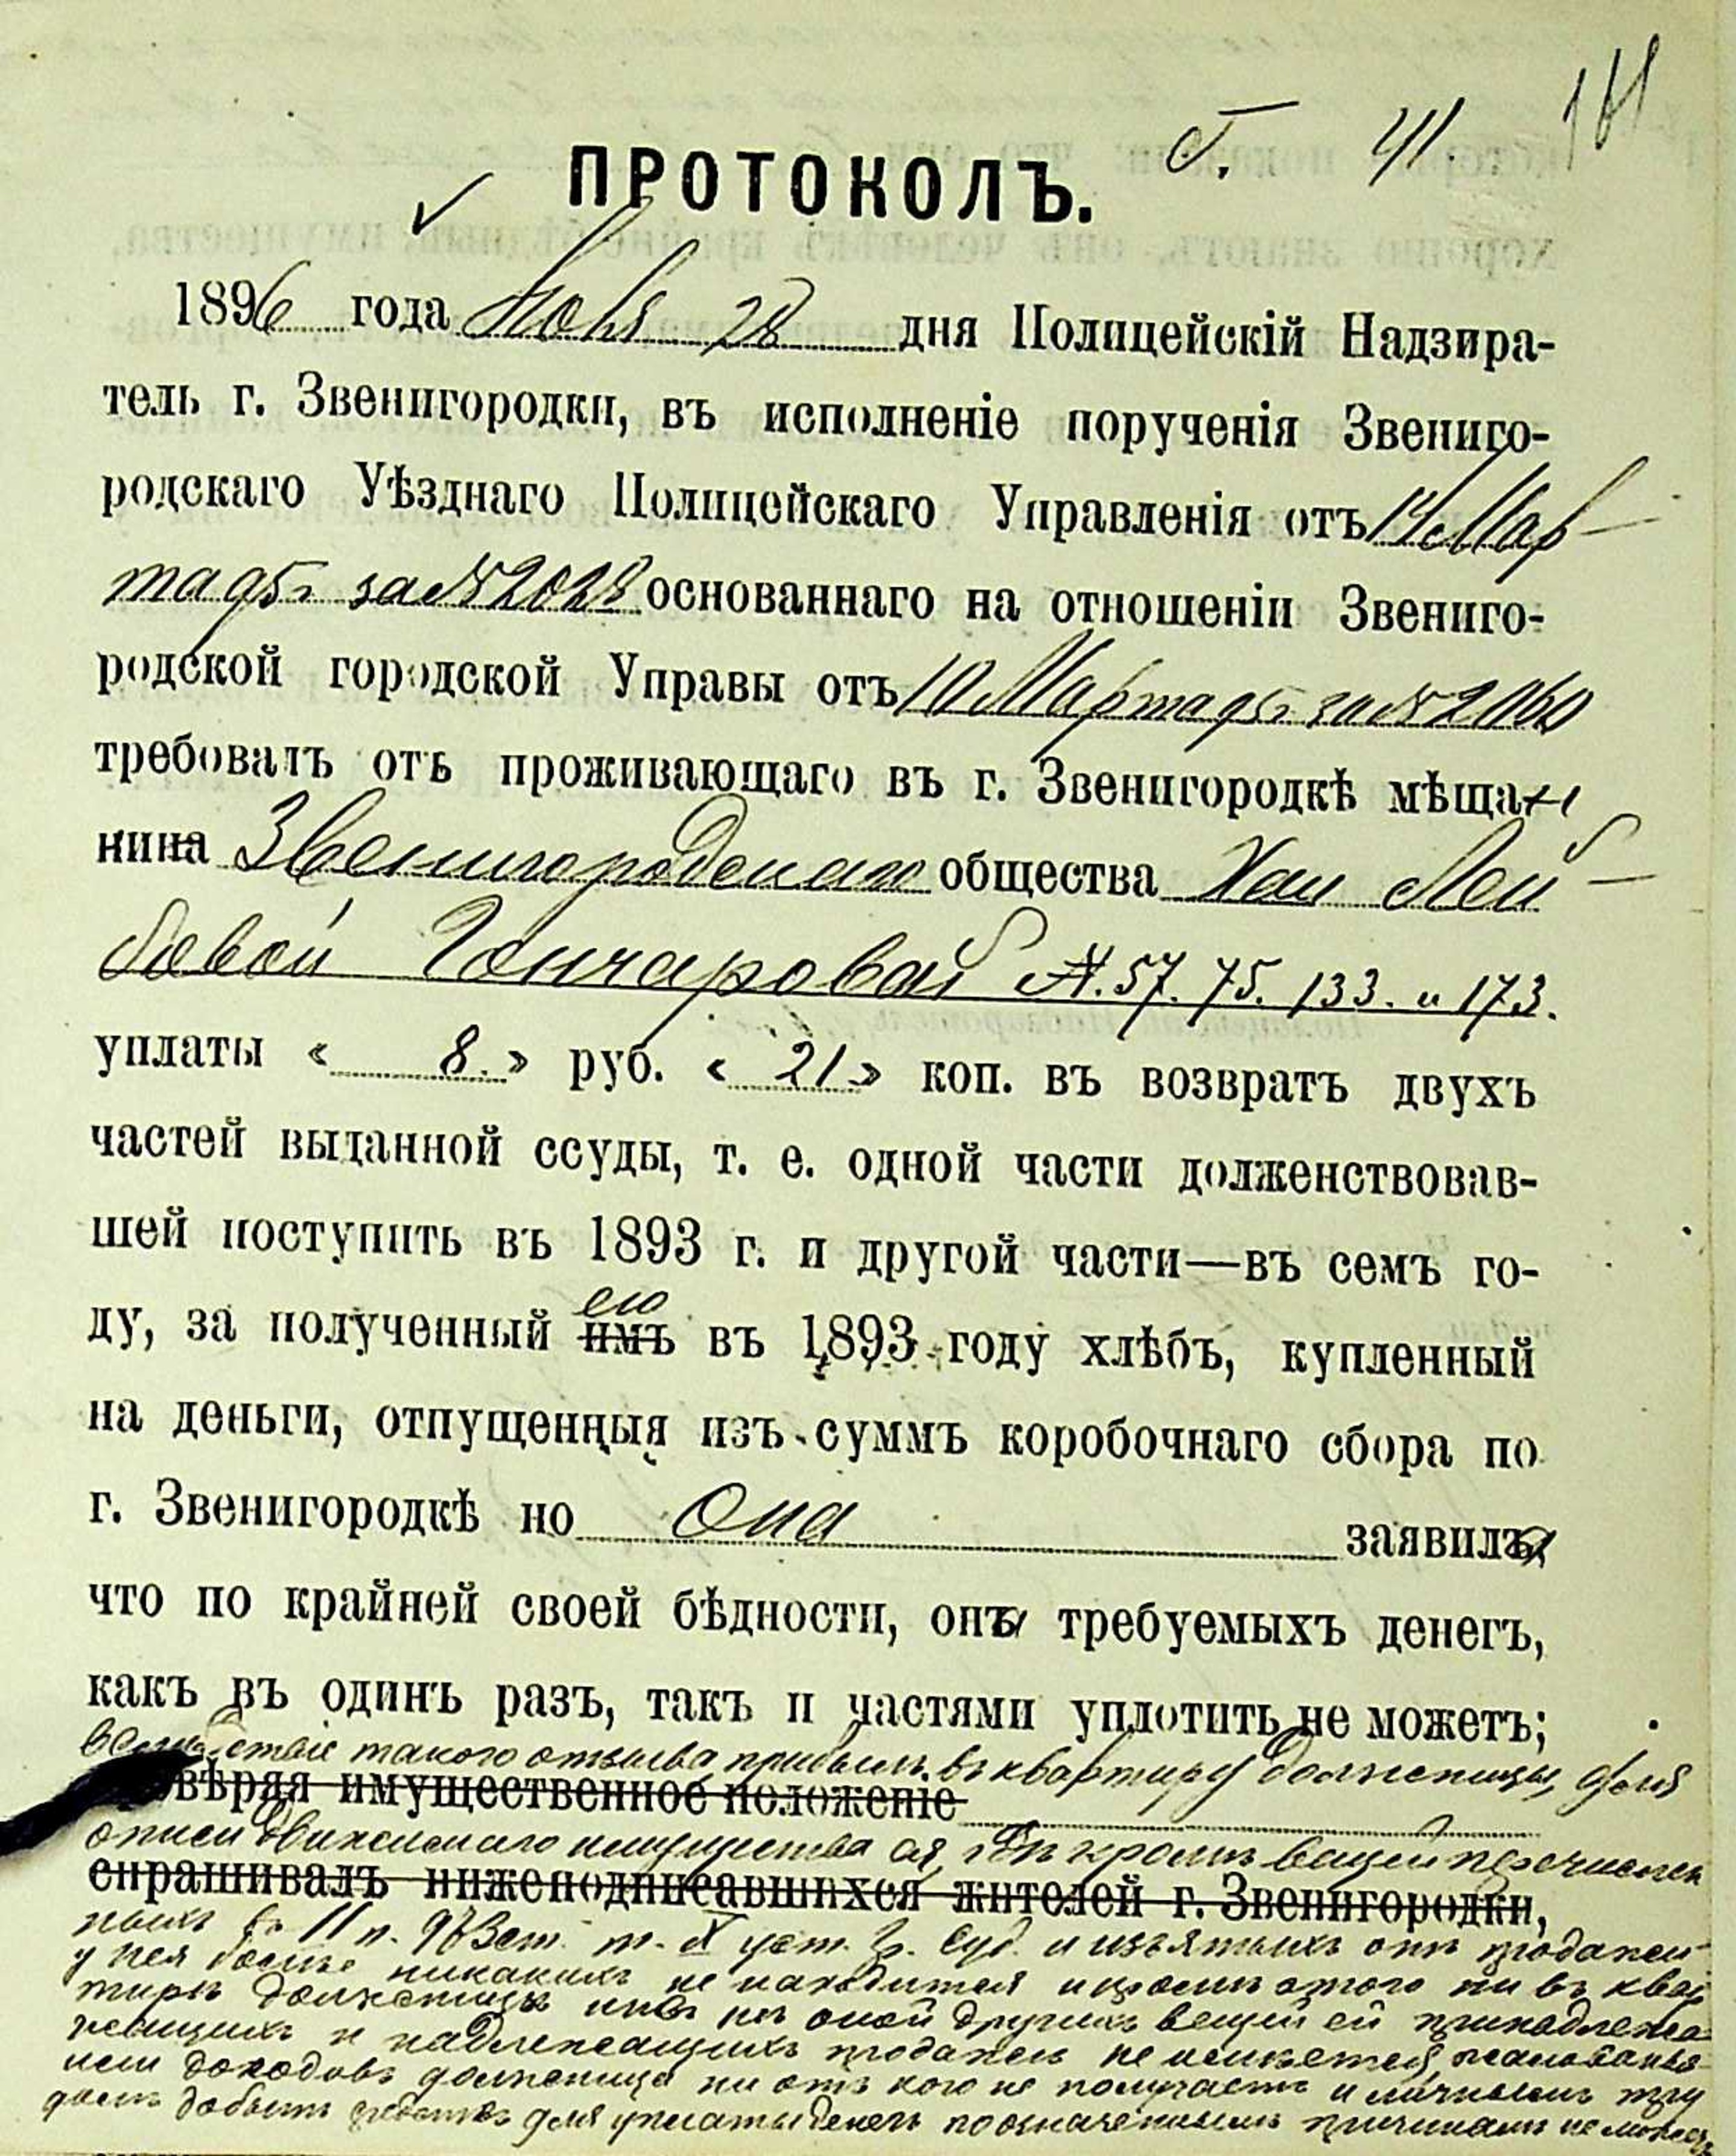 Т. 41. 141
ПРОТОКОЛЪ.
1896 года Ноя 28 дня Полицейскій Надзира-
тель г. Звенигородки, въ исполненіе порученія Звениго-
родскаго Уѣзднаго Полицейскаго Управленія отъ 14 Мар-
та 95 г за № 2028 основаннаго на отношеніи Звениго-
родской городской Управы отъ 10 Марта 95 г за № 2060
требовалъ отъ проживающаго въ г. Звенигородкѣ мѣщан
нина Звенигородскаго общества Хаи Лей-
бовой Гончаровой А. 57. 75. 133. и 173.
уплаты « 8. » руб. « 21 » коп. въ возвратъ двухъ
частей выданной ссуды, т. е. одной части долженствовав-
шей поступить въ 1893 г. и другой части—въ семъ го-
ею
ду, за полученный имъ въ 1893 году хлѣбъ, купленный
на деньги, отпущенныя изъ суммъ коробочнаго сбора по
г. Звенигородкѣ но Она заявила
что по крайней своей бѣдности, она требуемыхъ денегъ,
какъ въ одинъ разъ, такъ и частями уплотить не можетъ;
вслѣдствіе такого отзыва прибылъ въ квартиру должницы, для
вѣряя имущественное положеніе
описи движимаго имущества ея, гдѣ кромѣ вещей перечислен
спрашивалъ нижеподписавшихся жителей г. Звенигородки,
ныхъ въ 11 п. 973 ст. т. X уст. Гр. Суд. и изъятыхъ отъ продажи
у нея болѣе никакихъ не находится и кромѣ этого ни въ квар
тирѣ должницы ни внѣ оной другихъ вещей ей принадлежа
жащихъ и надлежащихъ продажѣ не имѣется, жалованья
или доходовъ должница ни отъ кого не получаетъ и личнымъ тру
домъ добыть средствъ для уплаты денегъ по означеннымъ причинамъ не можетъ